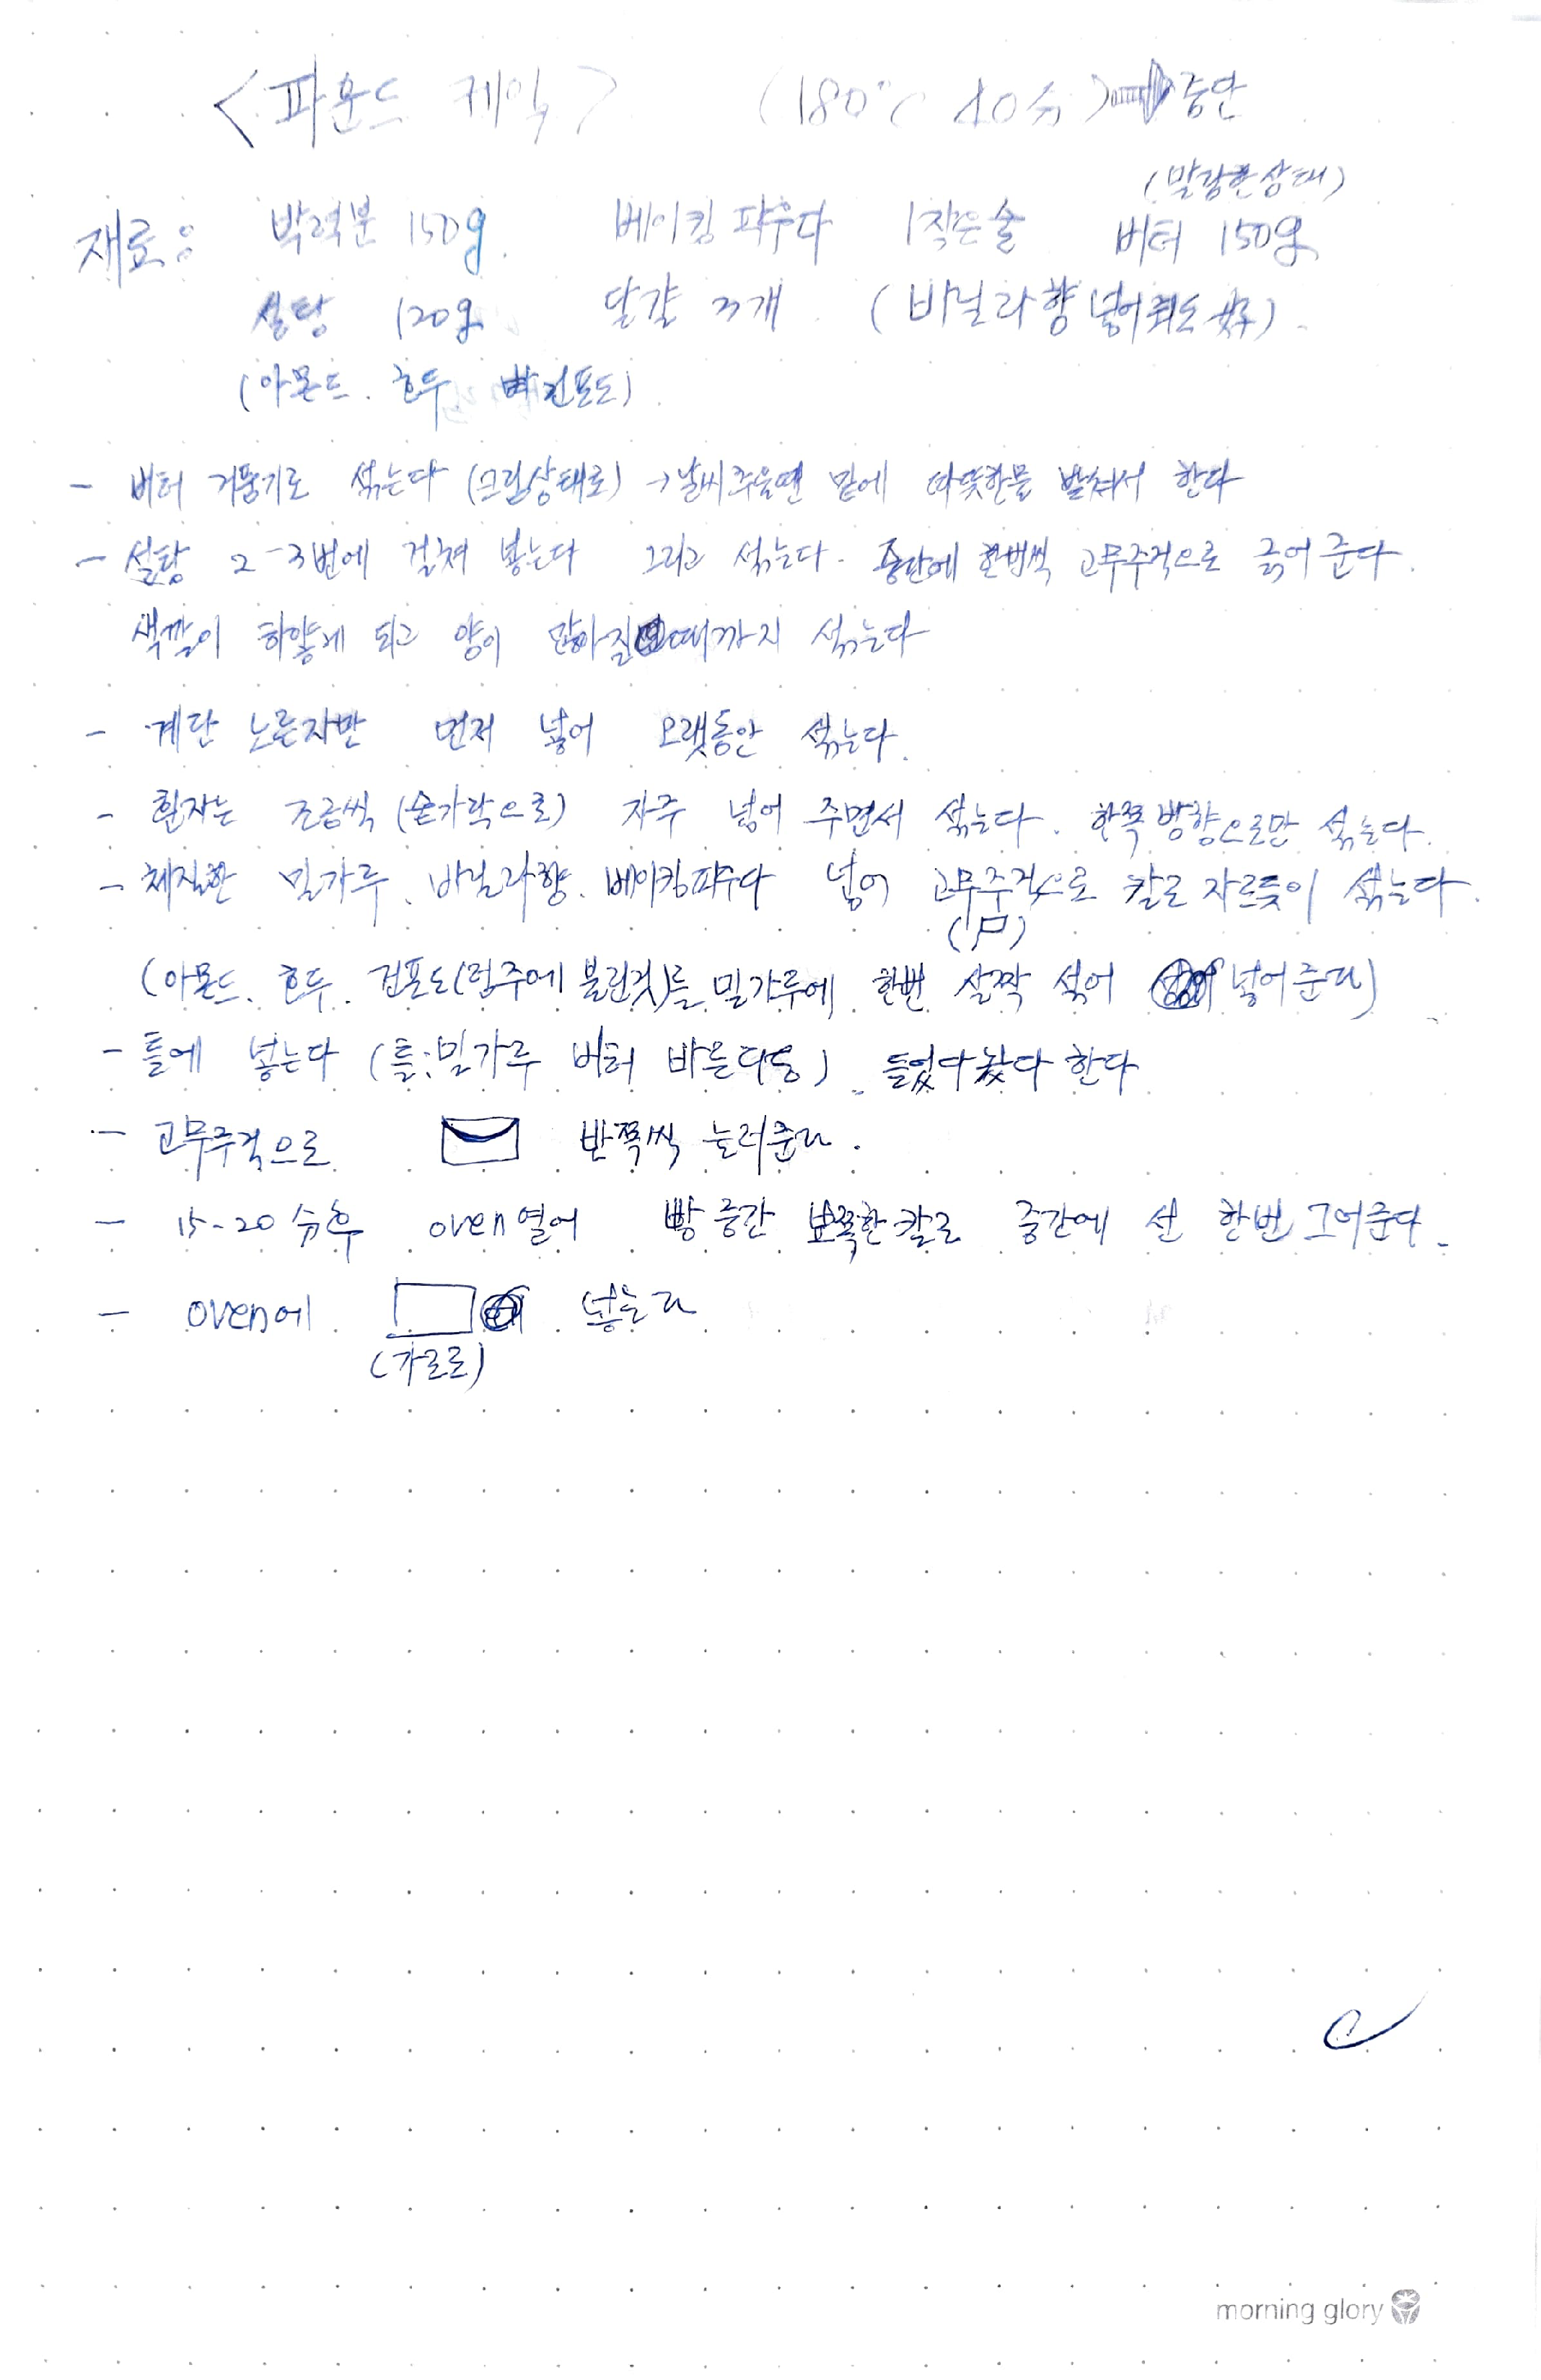 <파운드 케잌> (180°C 40分) → 중단
(말랑한상태)
재료: 박력분 150g. 베이킹 파우다 1작은술 버터 150g
설탕 120g 달걀 3개. (바닐라향 넣어줘도 好).
(아몬드. 호두. 건포도).
- 버터 거품기로 섞는다 (크림상태로) → 날씨추울땐 밑에 따뜻한물 받쳐서 한다
- 설탕 2-3번에 걸쳐 넣는다 그리고 섞는다. 중간에 한번씩 고무주걱으로 긁어준다.
색깔이 하얗게 되고 양이 많아질때까지 섞는다
- 계란 노른자만 먼저 넣어 오랫동안 섞는다.
- 흰자는 조금씩 (숟가락으로) 자주 넣어 주면서 섞는다. 한쪽방향으로만 섞는다.
- 체질한 밀가루. 바닐라향. 베이킹파우다 넣어 고무주걱으로 칼로 자르듯이 섞는다.
(아몬드. 호두. 건포도(럼주에 불린것)를 밀가루에 한번 살짝 섞어 넣어준다)
- 틀에 넣는다 (틀: 밀가루 버터 바른다음). 들었다놨다 한다
- 고무주걱으로 반쪽씩 눌러준다.
- 15-20分후 oven열어 빵 중간 뾰쪽한칼로 중간에 선 한번 그어준다.
- oven에 넣는다
(가로로)
morning glory